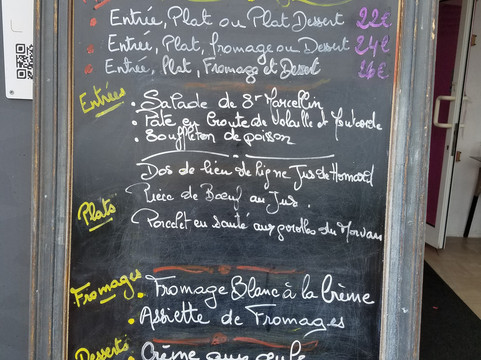 Entrée, Plat ou Plat Dessert 22€
Entrée, Plat, fromage ou Dessert 24€
Entrée, Plat, Fromage et Dessert 26€
Entrées
Salade de St Marcellin
Pâté en Croute de Volaille et Moutarde
Souffleton de poisson
Dos de lieu de ligne Jus de Homard
Plats
Pièce de Bœuf au Jus.
Porcelet en sauté aux girolles du Morvan
Fromages
Fromage Blanc à la Crème
Assiette de Fromages
Desserts
Crème aux œufs